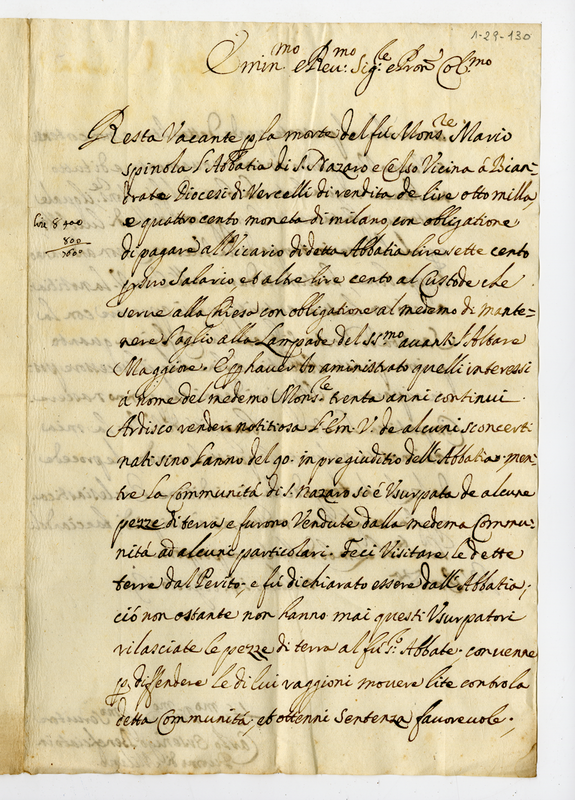 1-29-130
Emin.mo e Reu.mo Sig.re e Pron. Col.mo
Resta Vacante p la morte del fu Mons.re Mario
Spinola l'Abbatia di S. Nazaro e Celso Vicina á Bian=
drate Diocesi di Vercelli di rendita de lire otto milla,
lire 8400
e quattro cento moneta di milano, con obligatione
800
di pagare al Vicario di detta Abbatia lire sette cento
7600
p suo Salario, et altre lire cento al Custode che
serue alla Chiesa con obligatione al medemo di mante=
nere l'oglio alla Lampade del SS.mo auanti l'Altare
Maggiore. Et p hauer Io aministrato quelli interessi
á nome del medemo Mons.re trenta anni continui.
Ardisco render notitiosa l'Em. V. de alcuni sconcerti
nati sino l'anno del 90. in pregiuditio dell'Abbatia, men=
tre la Communitá di S. Nazaro si é Vsurpata de alcune
pezze di terra, e furono Vendute dalla medema Commu=
nitá ad alcuni particolari. Feci Visitare le dette
terre dal Perito, e fú dichiarato essere dall'Abbatia;
ció non ostante non hanno mai questi Vsurpatori
rilasciate le pezze di terra al fu S. Abbate. conuenne
p diffendere le di lui raggioni mouere lite contro la
detta Communitá, et ottenni Sentenza fauoreuole.,